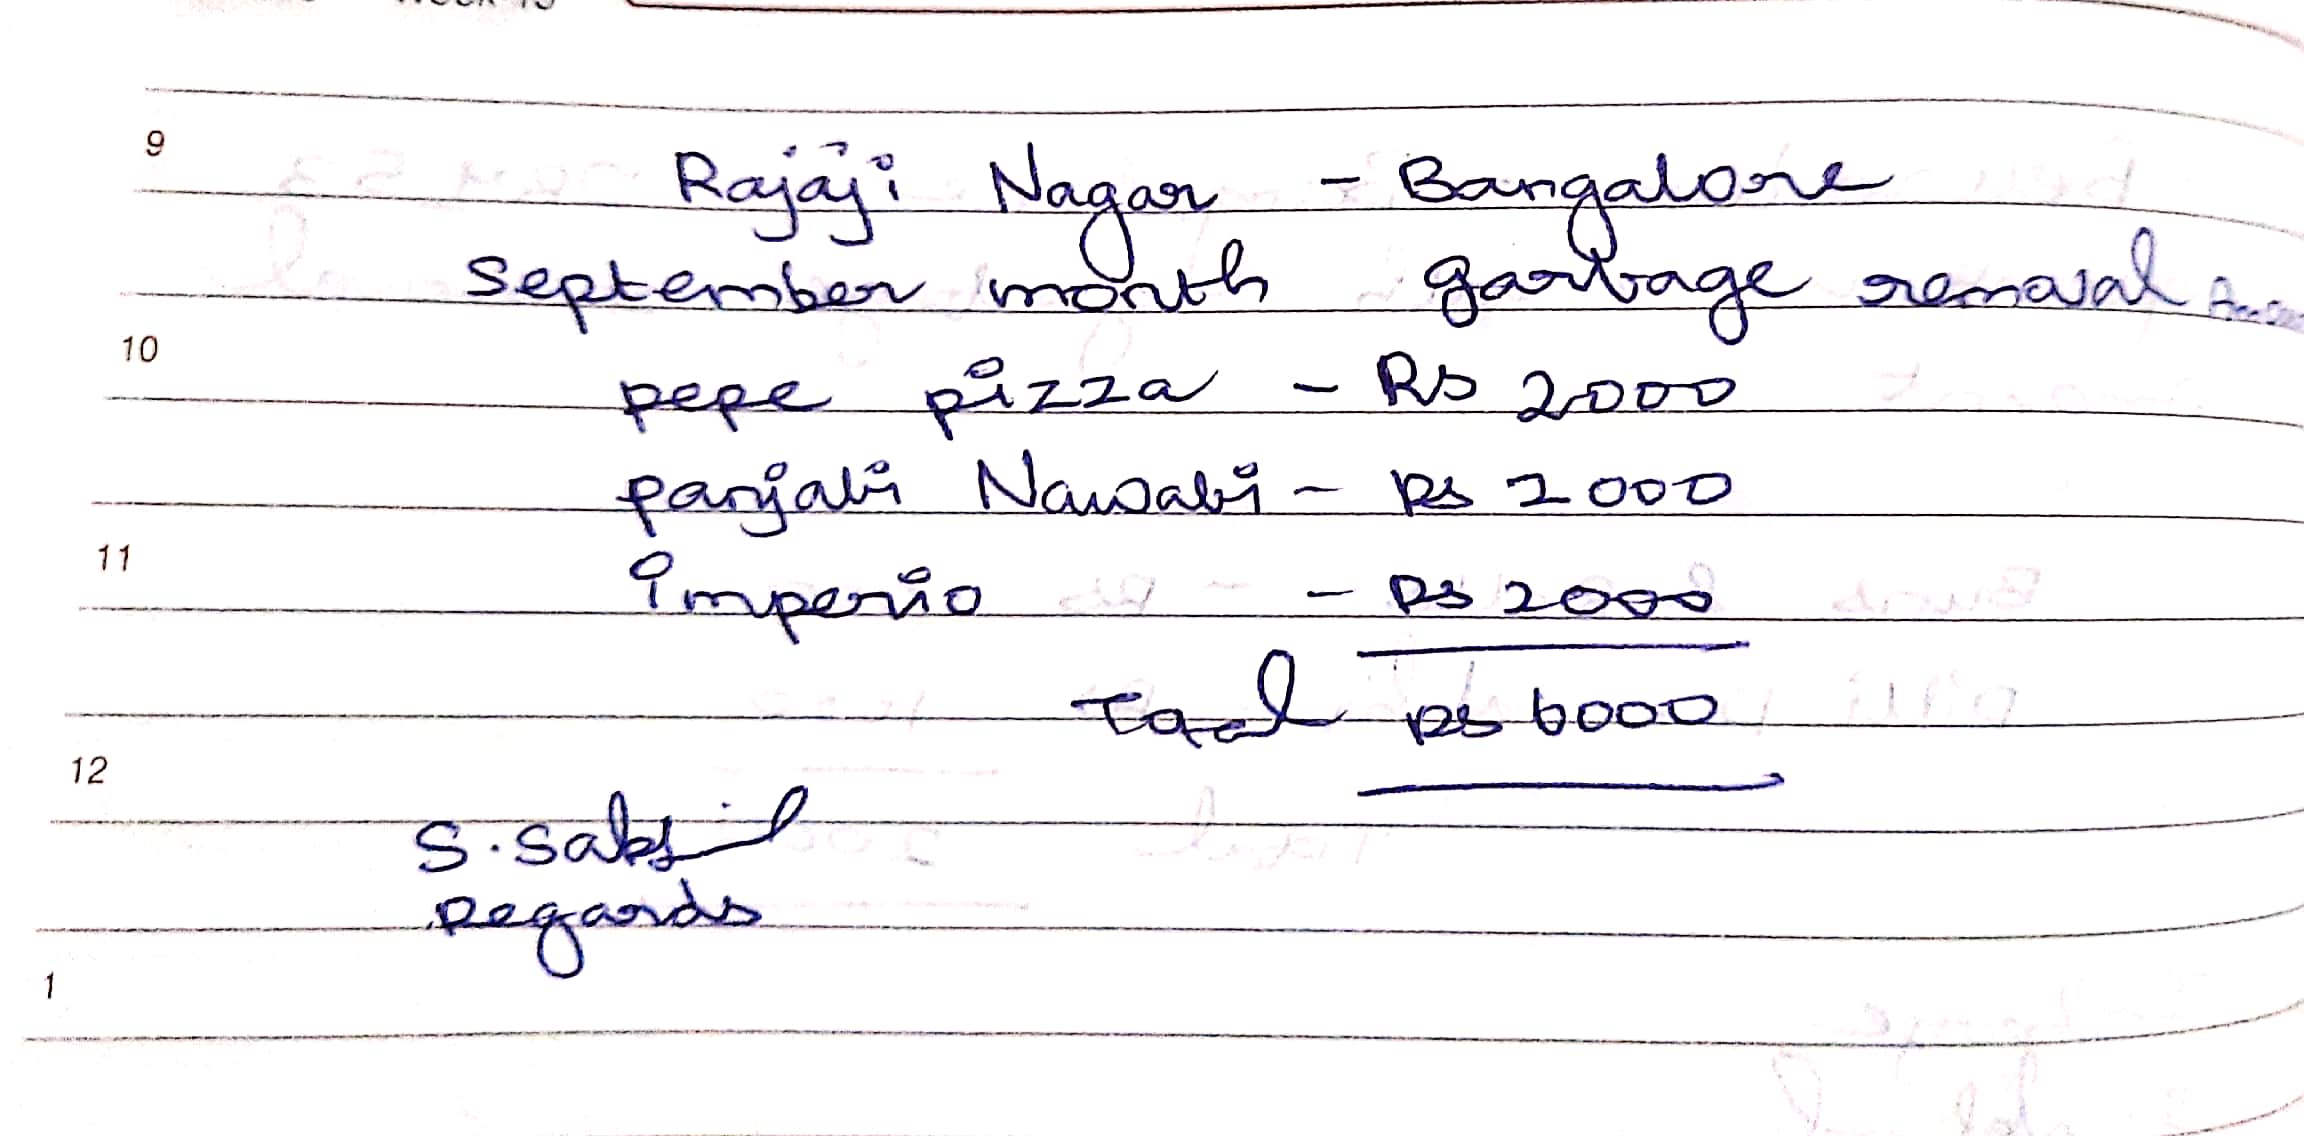 9
Rajaji Nagar - Bangalore
September month garbage removal
10
pepe pizza - Rs 2000
panjabi Nawabi - Rs 2000
11
imperio - Rs 2000
Total Rs 6000
12
S. Sakil
Regards
1